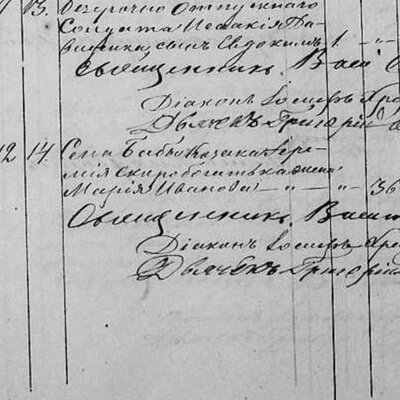 13. Безсрочно Отпускнаго
Солдата Исаакія Да-
виденка, сынъ Евдокимъ 1. — „ —
Священникъ Васи
Діаконъ Іосифъ
Дьячекъ Григорій
12 14. Села Козака Іере-
мія Скиробогатька жена
Марія Иванова — „ — „ — 36
Священникъ Васил
Діаконъ Іосифъ
Дьячекъ Григорій